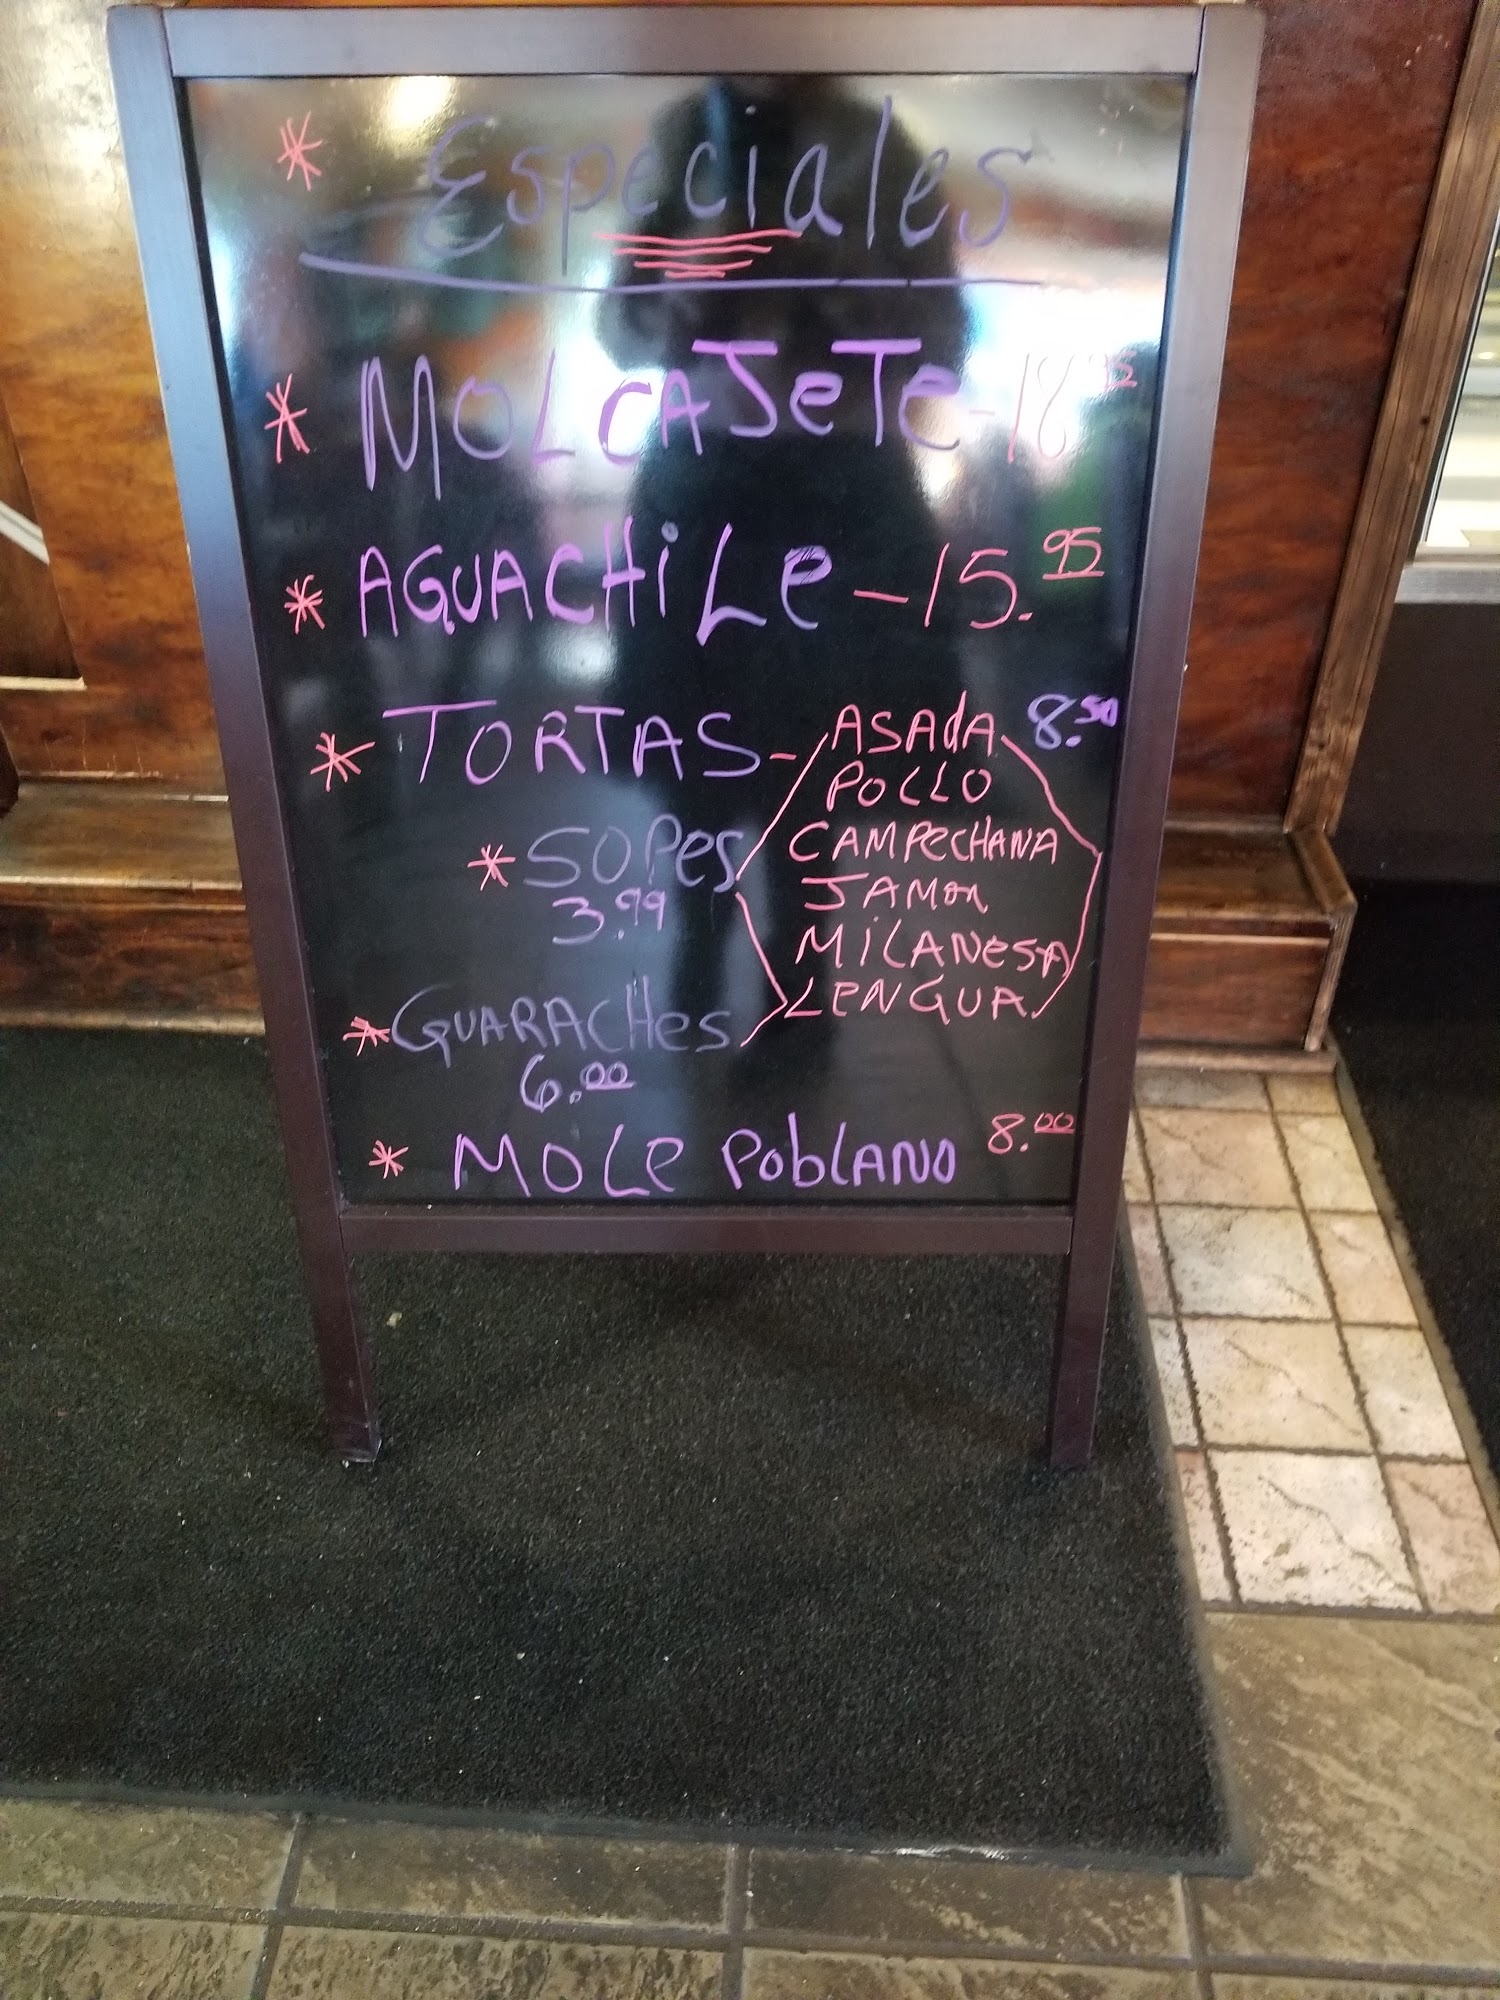 * Especiales
* MOLCAJETE - 18.95
* AGUACHILE - 15.95
* TORTAS - ASADA 8.50
POLLO
CAMPECHANA
* SOPES
JAMON
3.99
MILANESA
LENGUA
* GUARACHES
6.00
* MOLE POBLANO 8.00